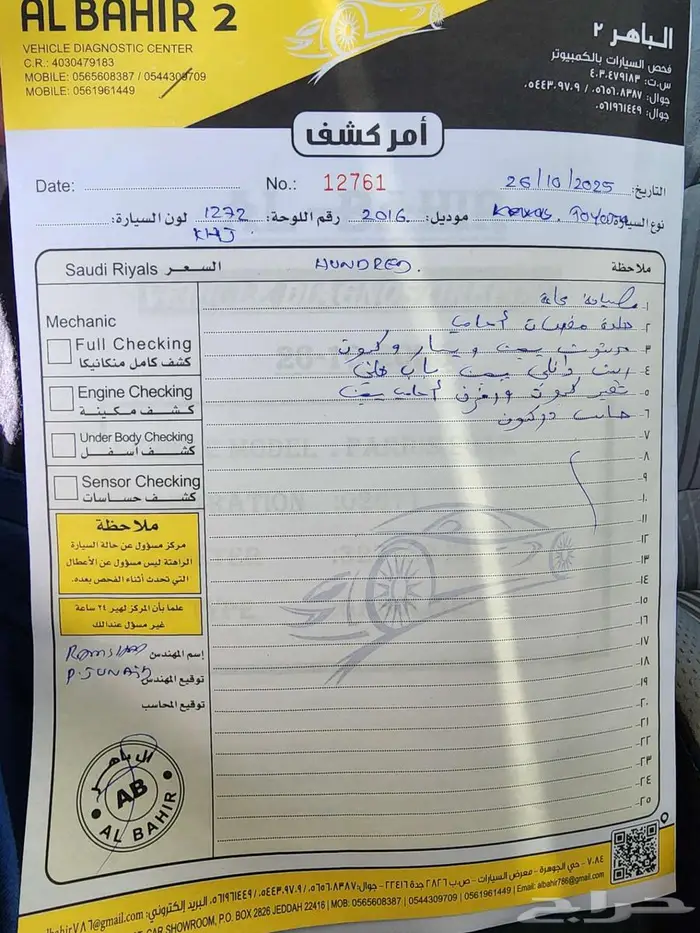 AL BAHIR 2
VEHICLE DIAGNOSTIC CENTER
C.R.: 4030479183
MOBILE: 0565608387 / 0544309709
MOBILE: 0561961449
الباهر ٢
فحص السيارات بالكمبيوتر
س.ت: ٤٠٣٠٤٧٩١٨٣
جوال: ٠٥٦٥٦٠٨٣٨٧ / ٠٥٤٤٣٠٩٧٠٩
جوال: ٠٥٦١٩٦١٤٤٩
أمر كشف
Date: No.: 12761 26/10/2025 التاريخ:
نوع السيارة: موديل: 2016 رقم اللوحة: 1272 لون السيارة:
KHJ
Saudi Riyals السعر HUNDRED. ملاحظة
Mechanic
Full Checking
كشف كامل منكانيكا
Engine Checking
كشف مكينة
Under Body Checking
كشف أسفل
Sensor Checking
كشف حساسات
١- صيانة عامة
٢- جلدة مقصات أمامي
٣- يمين ويسار وكبوت
٤- يمين باب
٥- كبوت ورفرف أمامي يمين
٦-
٧-
٨-
٩-
١٠-
١١-
١٢-
١٣-
١٤-
١٥-
١٦-
١٧-
١٨-
١٩-
٢٠-
٢١-
٢٢-
٢٣-
٢٤-
٢٥-
ملاحظة
مركز مسؤول عن حالة السيارة
الراهنة ليس مسؤول عن الأعطال
التي تحدث أثناء الفحص بعده.
علما بأن المركز لهير ٢٤ ساعة
غير مسؤل عندالك
إسم المهندس
توقيع المهندس P. JUNAID
توقيع المحاسب
الباهر
AB
AL BAHIR
٧٠٨٤ - حي الجوهرة - معرض السيارات - ص.ب ٢٨٢٦ جدة ٢٢٤١٦ - جوال: ٠٥٦٥٦٠٨٣٨٧ / ٠٥٤٤٣٠٩٧٠٩ / ٠٥٦١٩٦١٤٤٩. البريد إلكتروني: albahir786@gmail.com
CAR SHOWROOM, P.O. BOX 2826 JEDDAH 22416 | MOB: 0565608387 | 0544309709 | 0561961449 | Email: albahir786@gmail.com
حراج